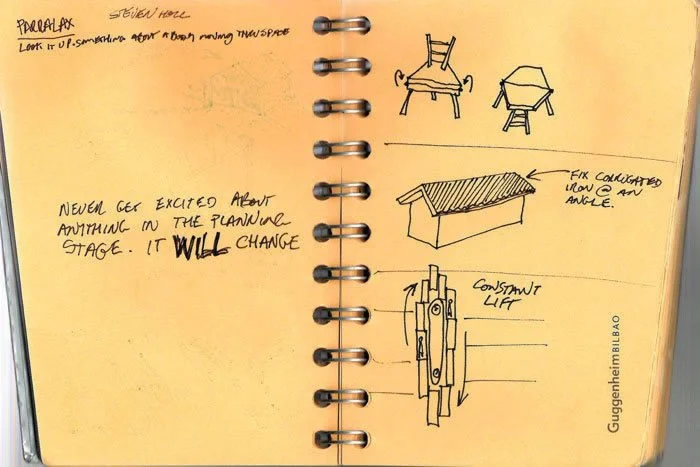 PARRALAX
STEVEN HOLL
LOOK IT UP. SOMETHING ABOUT A BODY MOVING THRU SPACE
NEVER GET EXCITED ABOUT
ANYTHING IN THE PLANNING
STAGE. IT WILL CHANGE
FIX CORRUGATED
IRON @ AN
ANGLE.
CONSTANT
LIFT
GuggenheimBILBAO